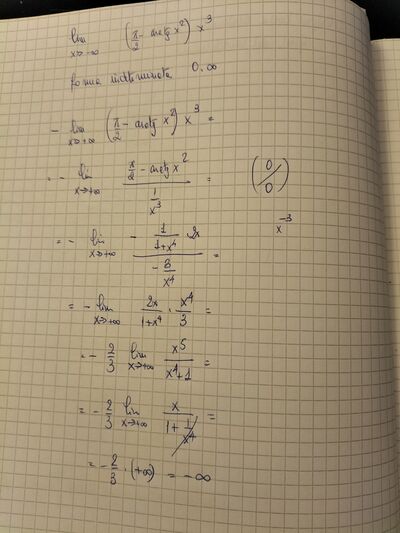 lim x→-∞ (π/2 - arctg x²) x³
forma indeterminata 0·∞
- lim x→+∞ (π/2 - arctg x²) x³ =
= - lim x→+∞ (π/2 - arctg x²)/(1/x³) = (0/0)
= - lim x→+∞ (- 1/(1+x⁴) 2x)/(- 3/x⁴) = x⁻³
= - lim x→+∞ 2x/(1+x⁴) · x⁴/3 =
= - 2/3 lim x→+∞ x⁵/(x⁴+1) =
= - 2/3 lim x→+∞ x/(1 + 1/x⁴) =
= - 2/3 · (+∞) = -∞